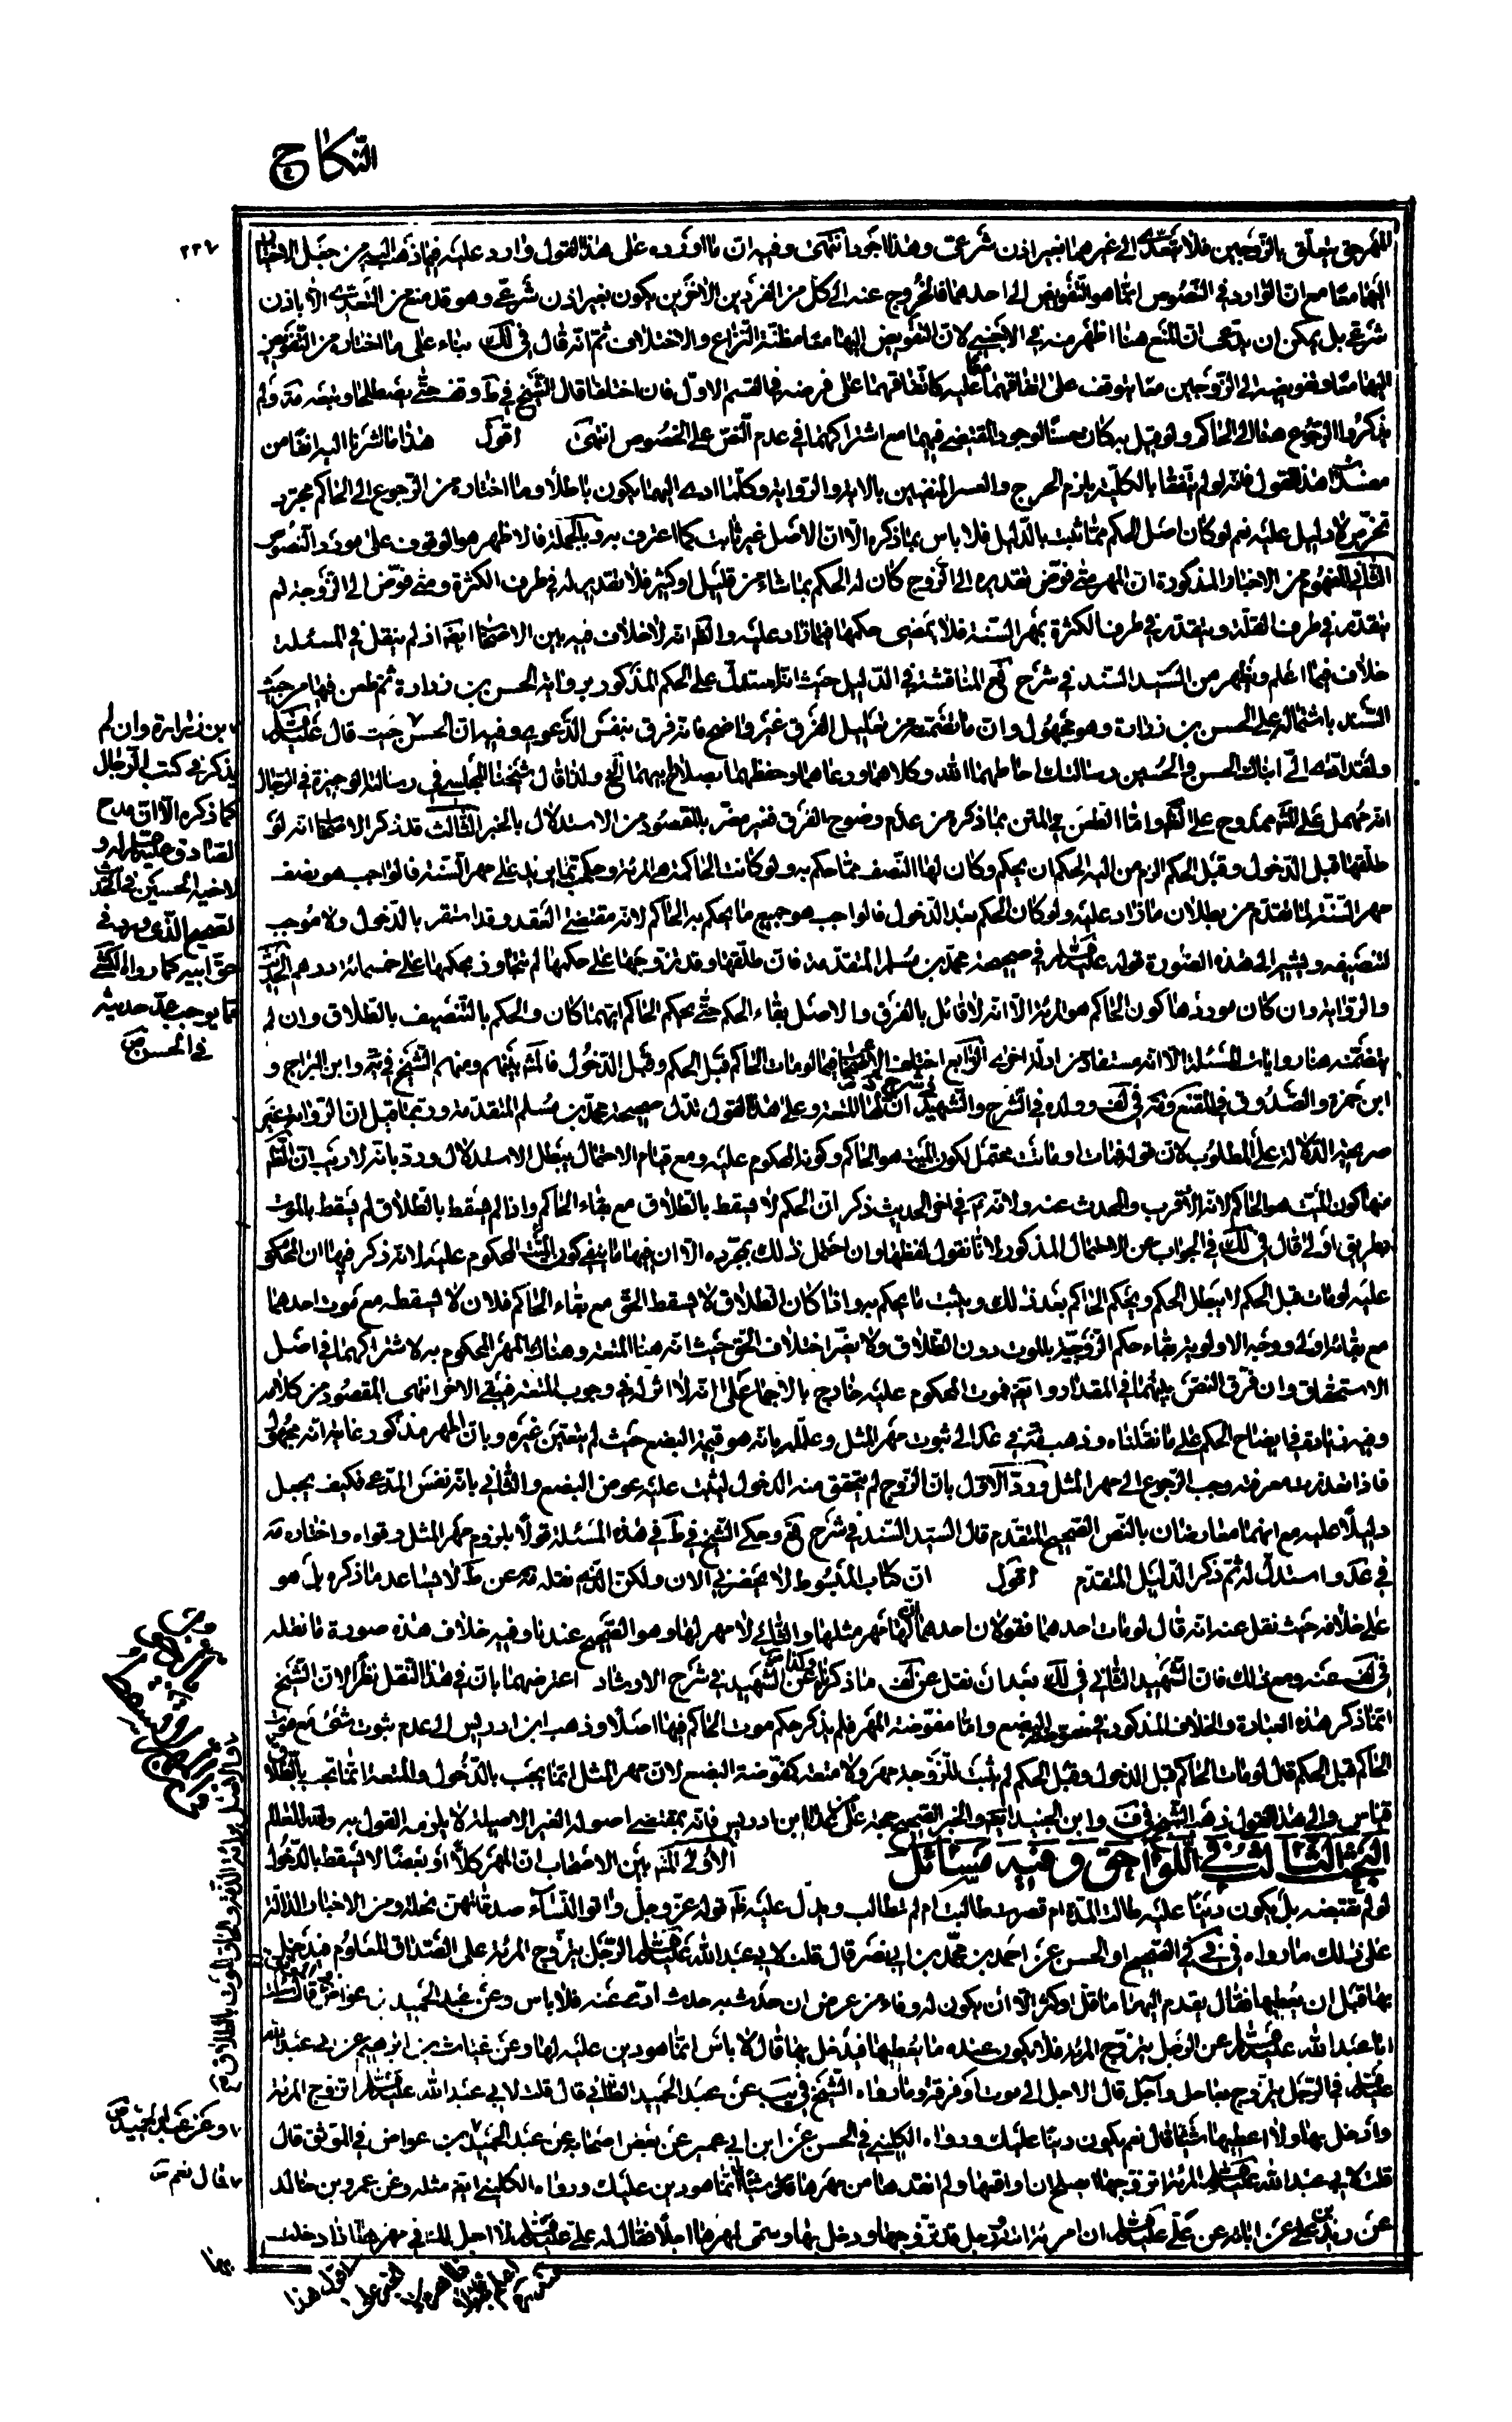 النكاح
المهر حق يتعلق بالزوجين فلا يتعداه الى غيرهما بغير اذن شرعى وهذا اجود انتهى وفيه ان ما اورده على هذا القول وارد عليه فيما ذهب اليه من قبل
اليهما معا مع ان الوارد في النصوص انما هو التفويض الى احدهما فالخروج عنه الى كل من الفردين الاخرين يكون بغير اذن شرعي وهو قد منع من التعدى الا باذن
شرعي بل يمكن ان يدعى ان المنع هنا اظهر منه في الاجنبي لان التفويض اليهما معا مظنة النزاع والاختلاف ثم انه قال في لك بناء على ما اختاره من التفويض
اليهما معا وتفويضه الى الزوجين معا يتوقف على اتفاقهما معا عليه كاتفاقهما على فرضه في القسم الاول فان اختلفا قال الشيخ في ط وقف حتى يصطلحا وتبعه مة ولم
يذكروا الرجوع هنا الى الحاكم ولو قيل به كان حسنا لوجود المقتضى فيهما مع اشتراكهما في عدم النص على الخصوص انتهى اقول هذا ما اشرنا اليه انفا من
هذا القول فانه لو لم يتفقا بالكلية يلزم الحرج والعسر المنفيين بالاية والرواية وكلما ادى اليهما يكون باطلا وما اختاره من الرجوع الى الحاكم مجرد
تخرص لا دليل عليه نعم لو كان اصل الحكم مما ثبت بالدليل فلا باس بما ذكره الا ان الاصل غير ثابت كما اعترف به وبالجملة فالاظهر هو الوقوف على مورد النصوص
الثاني المفهوم من الاخبار المذكورة ان المهر متى فوض تقديره الى الزوج كان له الحكم بما شاء من قليل او كثير فلا تقدير له في طرف الكثرة ومتى فوض الى الزوجة لم
يتقدر في طرف القلة ويتقدر في طرف الكثرة بمهر السنة فلا يمضى حكمها فيما زاد عليه والظ انه لا خلاف فيه بين الاصحاب ايضا اذ لم ينقل في المسئلة
خلاف فيما اعلم ويظهر من السيد السند في شرح فع المناقشة في الدليل حيث انه استدل على الحكم المذكور برواية الحسن بن زرارة ثم طعن فيها من حيث
السند باشتماله على الحسن بن زرارة وهو مجهول وان ما تضمنته من تعليل الفرق غير واضح فانه فرق بنفس الدعوى وفيه ان الحسن حيث قال عليه السلام
ولقد انه الى ابناك الحسن والحسين رسالتك احاطهما الله وكلاهما ورعاهما وحفظهما بصلاح ابيهما الخ ولذا قال شيخنا المجلسي في رسالته الوجيزة في الرجال
انه مهمل على الظ ممدوح على الظ واما الطعن في المتن بما ذكره من عدم وضوح الفرق فغير مضر بالمقصود من الاستدلال بالخبر الثالث قد ذكر الاصحاب انه لو
طلقها قبل الدخول وقبل الحكم الزم من اليه الحكم ان يحكم وكان لها النصف مما حكم به ولو كانت الحاكمة هي المرئة وحكمت بما يزيد على مهر السنة فالواجب هو نصف
مهر السنة لما تقدم من بطلان ما زاد عليه ولو كان الحكم بعد الدخول فالواجب هو جميع ما يحكم به الحاكم لانه مقتضى العقد وقد استقر بالدخول ولا موجب
لتنصيفه ويشير الى هذه الصورة قوله عليه السلام في صحيحة محمد بن مسلم المتقدمة فان طلقها وقد تزوجها على حكمها لم يتجاوز بحكمها على خمسمائة درهم الحديث
والرواية وان كان موردها كون الحاكم هو المرئة الا انه لا قائل بالفرق والاصل بقاء الحكم حتى يحكم الحاكم ايهما كان والحكم بالتنصيف بالطلاق وان لم
يتضمنه هنا روايات المسئلة الا انه مستفاد من ادلة اخرى الرابع اختلف الاصحاب فيما لو مات الحاكم قبل الحكم وقبل الدخول فالمش بينهم ومنهم الشيخ في ية وابن البراج و
ابن حمزة والصدوق في المقنع ومة في لف وولده في الشرح والشهيد ان لها المتعة وعلى هذا القول تدل صحيحة محمد بن مسلم المتقدمة وربما قيل ان الرواية غير
صريحة الدلالة على المطلوب لان قوله فمات او ماتت محتمل لكون الميت هو الحاكم وكونه المحكوم عليه ومع قيام الاحتمال يبطل الاستدلال ورد بانه لا ريب ان الظ
منها كون الميت هو الحاكم لانه الاقرب والمحدث عنه ولانه م في اخر الحديث ذكر ان الحكم لا يسقط بالطلاق مع بقاء الحاكم واذا لم يسقط بالطلاق لم يسقط بالموت
بطريق اولى قال في لك في الجواب عن الاحتمال المذكور لانا نقول لفظها وان احتمل ذلك بمجرده الا ان فيها ما ينفي كون الميت المحكوم عليه لانه ذكر فيها ان المحكوم
عليه لو مات قبل الحكم لا يبطل الحكم ويحكم الحاكم بعد ذلك ويثبت ما يحكم به واذا كان الطلاق لا يسقط الحق مع بقاء الحاكم فلان لا يسقطه مع موت احدهما
مع بقائه اولى ووجه الاولوية بقاء حكم الزوجية بالموت دون الطلاق ولا يضر اختلاف الحق حيث انه هنا المتعة وهناك المهر المحكوم به لاشتراكهما في اصل
الاستحقاق وان فرق النص بينهما في المقدار وايضا فموت المحكوم عليه خارج بالاجماع على انه لا اثر له في وجوب المتعة فبقى الاخر انتهى المقصود من كلامه
وفيه زيادة في ايضاح الحكم على ما نقلناه وذهب مة في عد الى ثبوت مهر المثل وعلله بانه هو قيمة البضع حيث لم يتعين غيره وبان المهر مذكور غايته انه مجهول
فاذا تعذرت معرفته وجب الرجوع الى مهر المثل ورد الاول بان الزوج لم يتحقق منه الدخول ليثبت عليه عوض البضع والثاني بانه نفس المدعى فكيف يجعل
دليلا عليه مع انهما معارضان بالنص الصحيح المتقدم قال السيد السند في شرح فع وحكى الشيخ في ط في هذه المسئلة قولا بلزوم مهر المثل وقواه واختاره مة
في عد واستدل له ثم ذكر الدليل المتقدم اقول ان كتاب المبسوط لا يحضرني الان ولكن الذي نقله مة عن ط لا يساعد ما ذكره بل هو
على خلافه حيث نقل عنه انه قال لو مات احدهما فقولان احدهما ان لها مهر مثلها والثاني لا مهر لها وهو الصحيح عندنا وفيه خلاف هذه صورة ما نقله
في لف عنه ومع ذلك فان الشهيد الثاني في لك بعد ان نقل عن لف ما ذكرناه وكذا عن الشهيد في شرح الارشاد اعترضهما بان في هذا النقل نظرا لان الشيخ
انما ذكر هذه العبارة والخلاف المذكور في مفوضة البضع واما مفوضة المهر فلم يذكر حكم موت الحاكم فيها اصلا وذهب ابن ادريس الى عدم ثبوت شئ مع موت
الحاكم قبل الحكم قال لو مات الحاكم قبل الدخول وقبل الحكم لم يثبت للزوجة مهر ولا متعة كمفوضة البضع لان مهر المثل انما يجب بالدخول والمتعة انما تجب بالطلاق
قياس والى هذا القول ذهب الشيخ في ف وابن الجنيد ايضا والخبر الصحيح حجة على من عدا ابن ادريس فانه بمقتضى اصوله الغير الاصيلة لا يلزمه القول به والله العالم
البحث الثالث في اللواحق وفيه مسائل الاولى المش بين الاصحاب ان المهر كلا او بعضا لا يسقط بالدخول
لو لم تقبضه بل يكون دينا عليه طالت المدة ام قصرت طالبت ام لم تطالب ويدل عليه ظ قوله عز وجل واتوا النساء صدقاتهن نحلة ومن الاخبار الدالة
على ذلك ما رواه في في في الصحيح او الحسن عن احمد بن محمد بن ابي نصر قال قلت لابي عبد الله عليه السلام الرجل يتزوج المرئة على الصداق المعلوم فيدخل
بها قبل ان يعطيها فقال يقدم اليها ما قل او كثر الا ان يكون له وفاء من عرض ان حدث به حدث ادى عنه فلا باس وعن عبد الحميد بن عواض قال سئلت
ابا عبد الله عليه السلام عن الرجل يتزوج المرئة فلا يكون عنده ما يعطيها فيدخل بها قال لا باس انما هو دين عليه لها وعن غياث بن ابراهيم عن ابي عبد الله
عليه السلام في الرجل يتزوج بعاجل وآجل قال الاجل الى موت او فرقة وما رواه الشيخ في يب عن عبد الحميد الطائي قال قلت لابي عبد الله عليه السلام اتزوج المرئة
وادخل بها ولا اعطيها شيئا قال نعم يكون دينا عليك ورواه الكليني في الحسن عن ابن ابي عمير عن بعض اصحابه عن عبد الحميد بن عواض في الموثق قال
قلت لابي عبد الله عليه السلام المرئة اتزوجها ايصلح ان اواقعها ولم انقدها من مهرها شيئا انما هو دين عليك ورواه الكليني ايضا مثله وعن عمرو بن خالد
عن زيد بن علي عن ابائه عن علي عليه السلام ان امرئة اتته ورجل قد تزوجها ودخل بها وسمى لها مهرا اجلا فقال له علي عليه السلام لا اجل لك في مهرها اذا دخلت
بها
بن زرارة وان لم
يذكر في كتب الرجال
كما ذكره الا ان مدح
الصادق عليه السلام له و
لاخيه الحسين في الحديث
الصحيح الذي ورد في
حق ابيه كما رواه الكشي
مما يوجب عد حديثه
في الحسن
وعن عبد الحميد
قال نعم